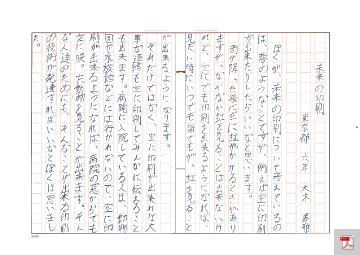 未来の印刷
東京都 六年 大木
ぼくが、未来の印刷について考えているの
は、夢のようなことですが、例えば空に印刷
が出来たりしたらいいなと思います。
雨が降った後に空に虹がかかるときがあり
ますが、なかなか虹を見ることは出来ないけ
れど、空にでも印刷を出来るようになれば、
見たい時にいつでも誰でもが、虹を見ること
が出来るようになります。
それだけではなく、空に印刷が出来れば大
事な連絡も空に印刷してみんなに伝えること
も出来ます。病院に入院している人は、動物
園や水族館などには行かれないので、空に印
刷が出来るようになれば、病院の窓からでも
空に映った動物を見ることが出来ます。そん
な人達のためにも、そんなことが出来る印刷
の技術が発達すればいいなとぼくは思いまし
た。